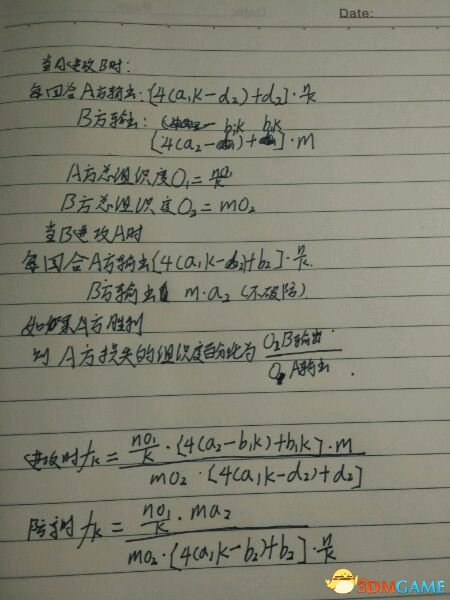 Date:
当A进攻B时:
每回合A方输出:[4(a₁k-d₂)+d₂]·n/k
B方输出: b₁k b₁k
[4(a₂- )+ ]·m
A方总组织度O₁=no₁/k
B方总组织度O₂=mo₂
当B进攻A时
每回合A方输出[4(a₁k-b₂)+b₂]·n/k.
B方输出 m·a₂(不破防)
如果A方胜利
则A方损失的组织度百分比为 O₂B输出/O₁A输出.
进攻时fk= no₁/k·[4(a₂-b₁k)+b₁k]·m / mo₂·[4(a₁k-d₂)+d₂]
防守时fk= no₁/k·ma₂ / mo₂·[4(a₁k-b₂)+b₂]·n/k
3DMGAME